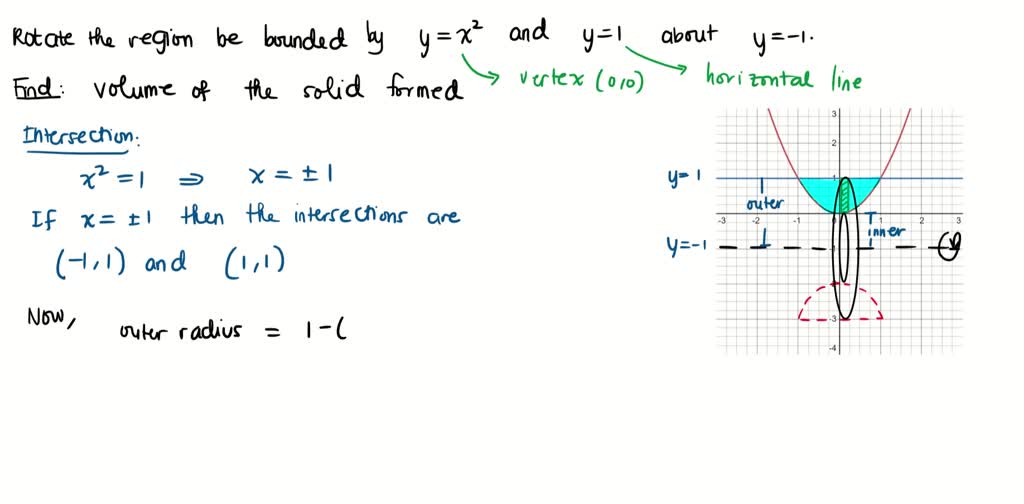 Rotate the region be bounded by y = x² and y=1 about y=-1.
Find: volume of the solid formed
vertex (0,0)
horizontal line
Intersection:
x² = 1 ⇒ x = ±1
If x = ±1 then the intersections are
(-1,1) and (1,1)
Now, outer radius = 1-(
y=1
outer
inner
y=-1
3
2
1
-3 -2 -1 0 1 2 3
-3
-4